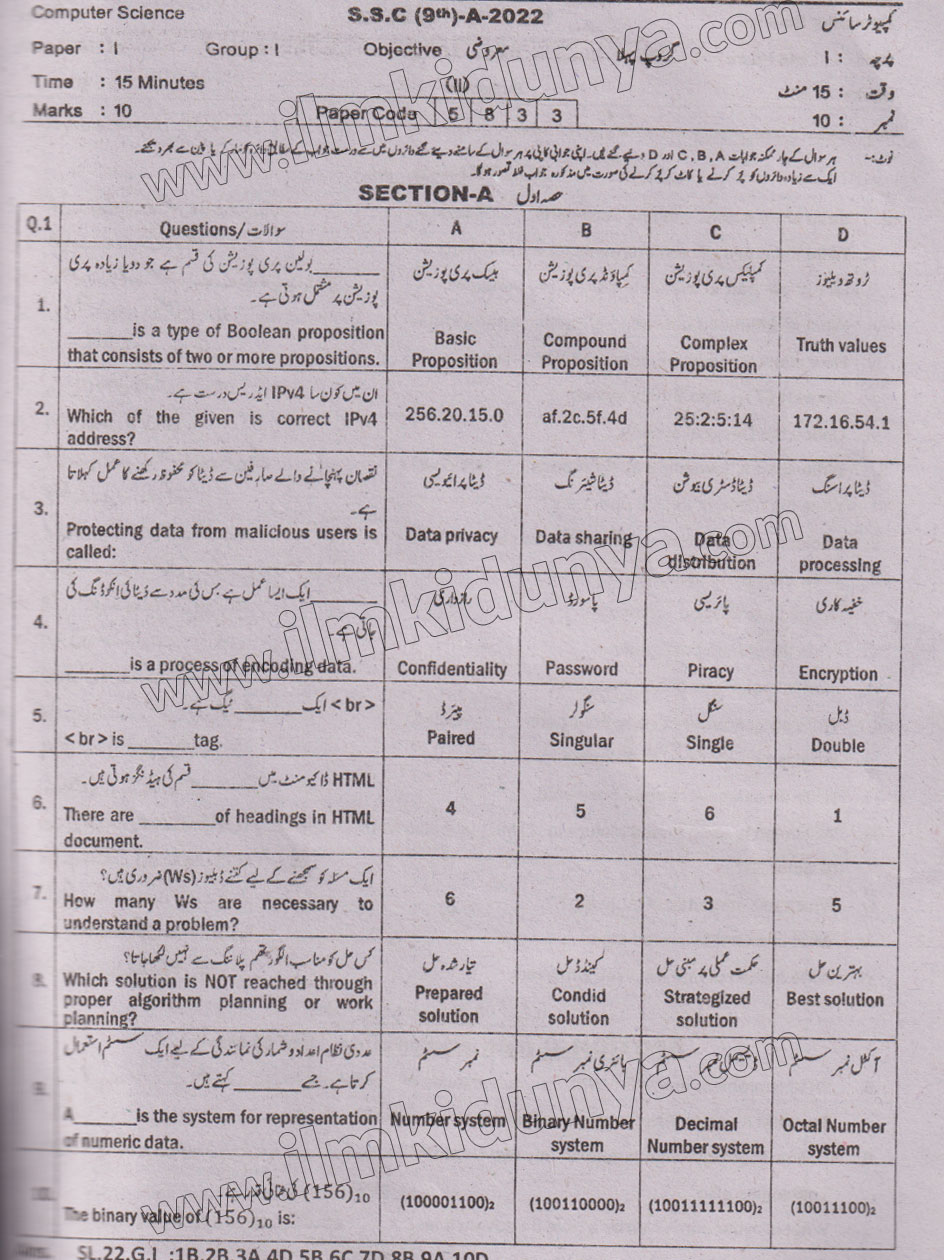 Computer Science
S.S.C (9th)-A-2022
کمپیوٹر سائنس
Paper : I Group : I Objective معروضی گروپ پہلا پرچہ : I
Time : 15 Minutes (II) وقت : 15 منٹ
Marks : 10 Paper Code 5 8 3 3 نمبر : 10
نوٹ:- ہر سوال کے چار ممکنہ جوابات C, B, A اور D دیے گئے ہیں۔ اپنی جوابی کاپی پر ہر سوال کے سامنے دیے گئے دائروں میں سے درست جواب کے مطابق دائرہ کو مارکر یا پین سے بھر دیجئے۔
ایک سے زیادہ دائروں کو پُر کرنے یا کاٹ کر پُر کرنے کی صورت میں مذکورہ جواب غلط تصور ہوگا۔
SECTION-A حصہ اول
Q.1 Questions/سوالات A B C D
1.
______بولین پری پوزیشن کی قسم ہے جو دو یا زیادہ پری
پوزیشن پر مشتمل ہوتی ہے۔
______is a type of Boolean proposition
that consists of two or more propositions.
بیسک پری پوزیشن
Basic
Proposition
کمپاؤنڈ پری پوزیشن
Compound
Proposition
کمپلیکس پری پوزیشن
Complex
Proposition
ٹروتھ ویلیوز
Truth values
2.
ان میں کون سا IPv4 ایڈریس درست ہے۔
Which of the given is correct IPv4
address?
256.20.15.0
af.2c.5f.4d
25:2:5:14
172.16.54.1
3.
نقصان پہنچانے والے صارفین سے ڈیٹا کو محفوظ رکھنے کا عمل کہلاتا
ہے۔
Protecting data from malicious users is
called:
ڈیٹا پرائیویسی
Data privacy
ڈیٹا شیئرنگ
Data sharing
ڈیٹا ڈسٹری بیوشن
Data
distribution
ڈیٹا پراسسنگ
Data
processing
4.
______ایک ایسا عمل ہے جس کی مدد سے ڈیٹا کی انکوڈنگ کی
جاتی ہے۔
______is a process of encoding data.
رازداری
Confidentiality
پاسورڈ
Password
پائریسی
Piracy
خفیہ کاری
Encryption
5.
<br> ایک ______ ٹیگ ہے۔
<br> is ______tag.
پیئرڈ
Paired
سنگولر
Singular
سنگل
Single
ڈبل
Double
6.
HTML ڈاکیومنٹ میں ______ قسم کی ہیڈنگز ہوتی ہیں۔
There are ______of headings in HTML
document.
4
5
6
1
7.
ایک مسئلہ کو سمجھنے کے لیے کتنے ڈبلیوز (Ws) ضروری ہیں؟
How many Ws are necessary to
understand a problem?
6
2
3
5
8.
کس حل کو مناسب الگورتھم پلاننگ سے نہیں لکھا جاتا؟
Which solution is NOT reached through
proper algorithm planning or work
planning?
تیار شدہ حل
Prepared
solution
کینڈڈ حل
Condid
solution
حکمت عملی پر مبنی حل
Strategized
solution
بہترین حل
Best solution
9.
عددی نظام اعداد و شمار کی نمائندگی کے لیے ایک سسٹم استعمال
کرتا ہے۔ جسے ______ کہتے ہیں۔
A______is the system for representation
of numeric data.
نمبر سسٹم
Number system
بائنری نمبر سسٹم
Binary Number
system
ڈیسیمل نمبر سسٹم
Decimal
Number system
آکٹل نمبر سسٹم
Octal Number
system
10.
(156)10 کی بائنری قدر ہے۔
The binary value of (156)10 is:
(100001100)2
(100110000)2
(10011111100)2
(10011100)2
SL.22.G.I :1B,2B,3A,4D,5B,6C,7D,8B,9A,10D
www.ilmkidunya.com
www.ilmkidunya.com
www.ilmkidunya.com